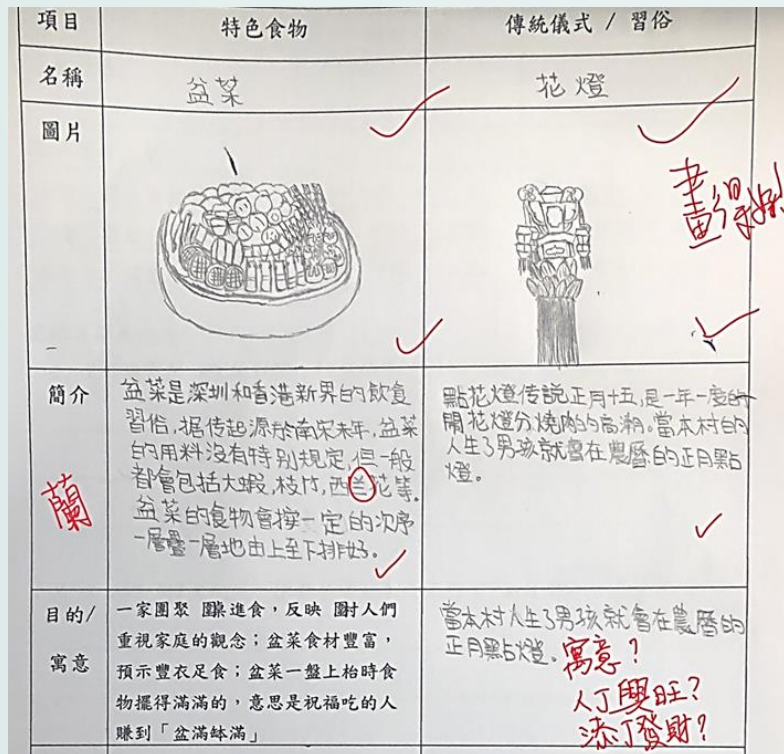 項目
特色食物
傳統儀式 / 習俗
名稱
盆菜
花燈
圖片
畫得好
簡介
盆菜是深圳和香港新界的飲食
習俗,据传起源於南宋末年,盆菜
的用料沒有特別規定,但一般
都會包括大蝦,枝竹,西兰花等。
盆菜的食物會按一定的次序
一層疊一層地由上至下排好。
蘭
點花燈传説正月十五,是一年一度的
鬧花燈分燒肉的高潮。當本村的
人生了男孩就會在農曆的正月點
燈。
目的/
寓意
一家團聚 圍桌進食,反映 圍村人們
重視家庭的觀念;盆菜食材豐富,
預示豐衣足食;盆菜一盤上枱時食
物擺得滿滿的,意思是祝福吃的人
賺到「盆滿缽滿」
當本村人生了男孩就會在農曆的
正月點燈。
寓意?
人丁興旺?
添丁發財?